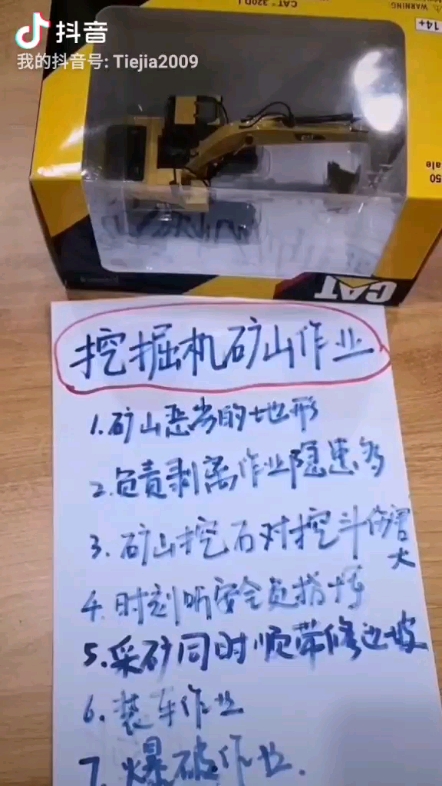 抖音
我的抖音号: Tiejia2009
CAT® 320D L
WARNING
14+
50
ale
CAT
挖掘机矿山作业
1.矿山恶劣的地形
2.负责剥离作业隐患多
3.矿山挖石对挖斗伤害大
4.时刻听安全员指挥
5.采矿同时顺带修边坡
6.装车作业
7.爆破作业.